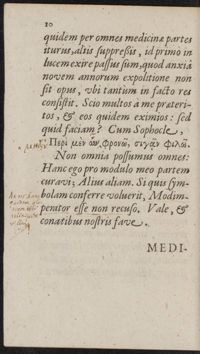 10
quidem per omnes medicinæ partes
iturus, altis suppressis, id primo in
lucem exire passus sum, quod anxiâ
novem annorum expolitione non
sit opus, ubi tantum in facto res
consistit. Scio multos à me præteri-
tos, & eos quidem eximios: sed
quid faciam? Cum Sophocle,
Περὶ μὲν ὧν φρονῶ, σιγᾷν φιλῶ.
Non omnia possumus omnes:
Hanc ego pro modulo meo partem
curavi; Alius aliam. Si quis sym-
bolam conferre voluerit, Modim-
perator esse non recuso. Vale, &
conatibus nostris fave.
MEDI-